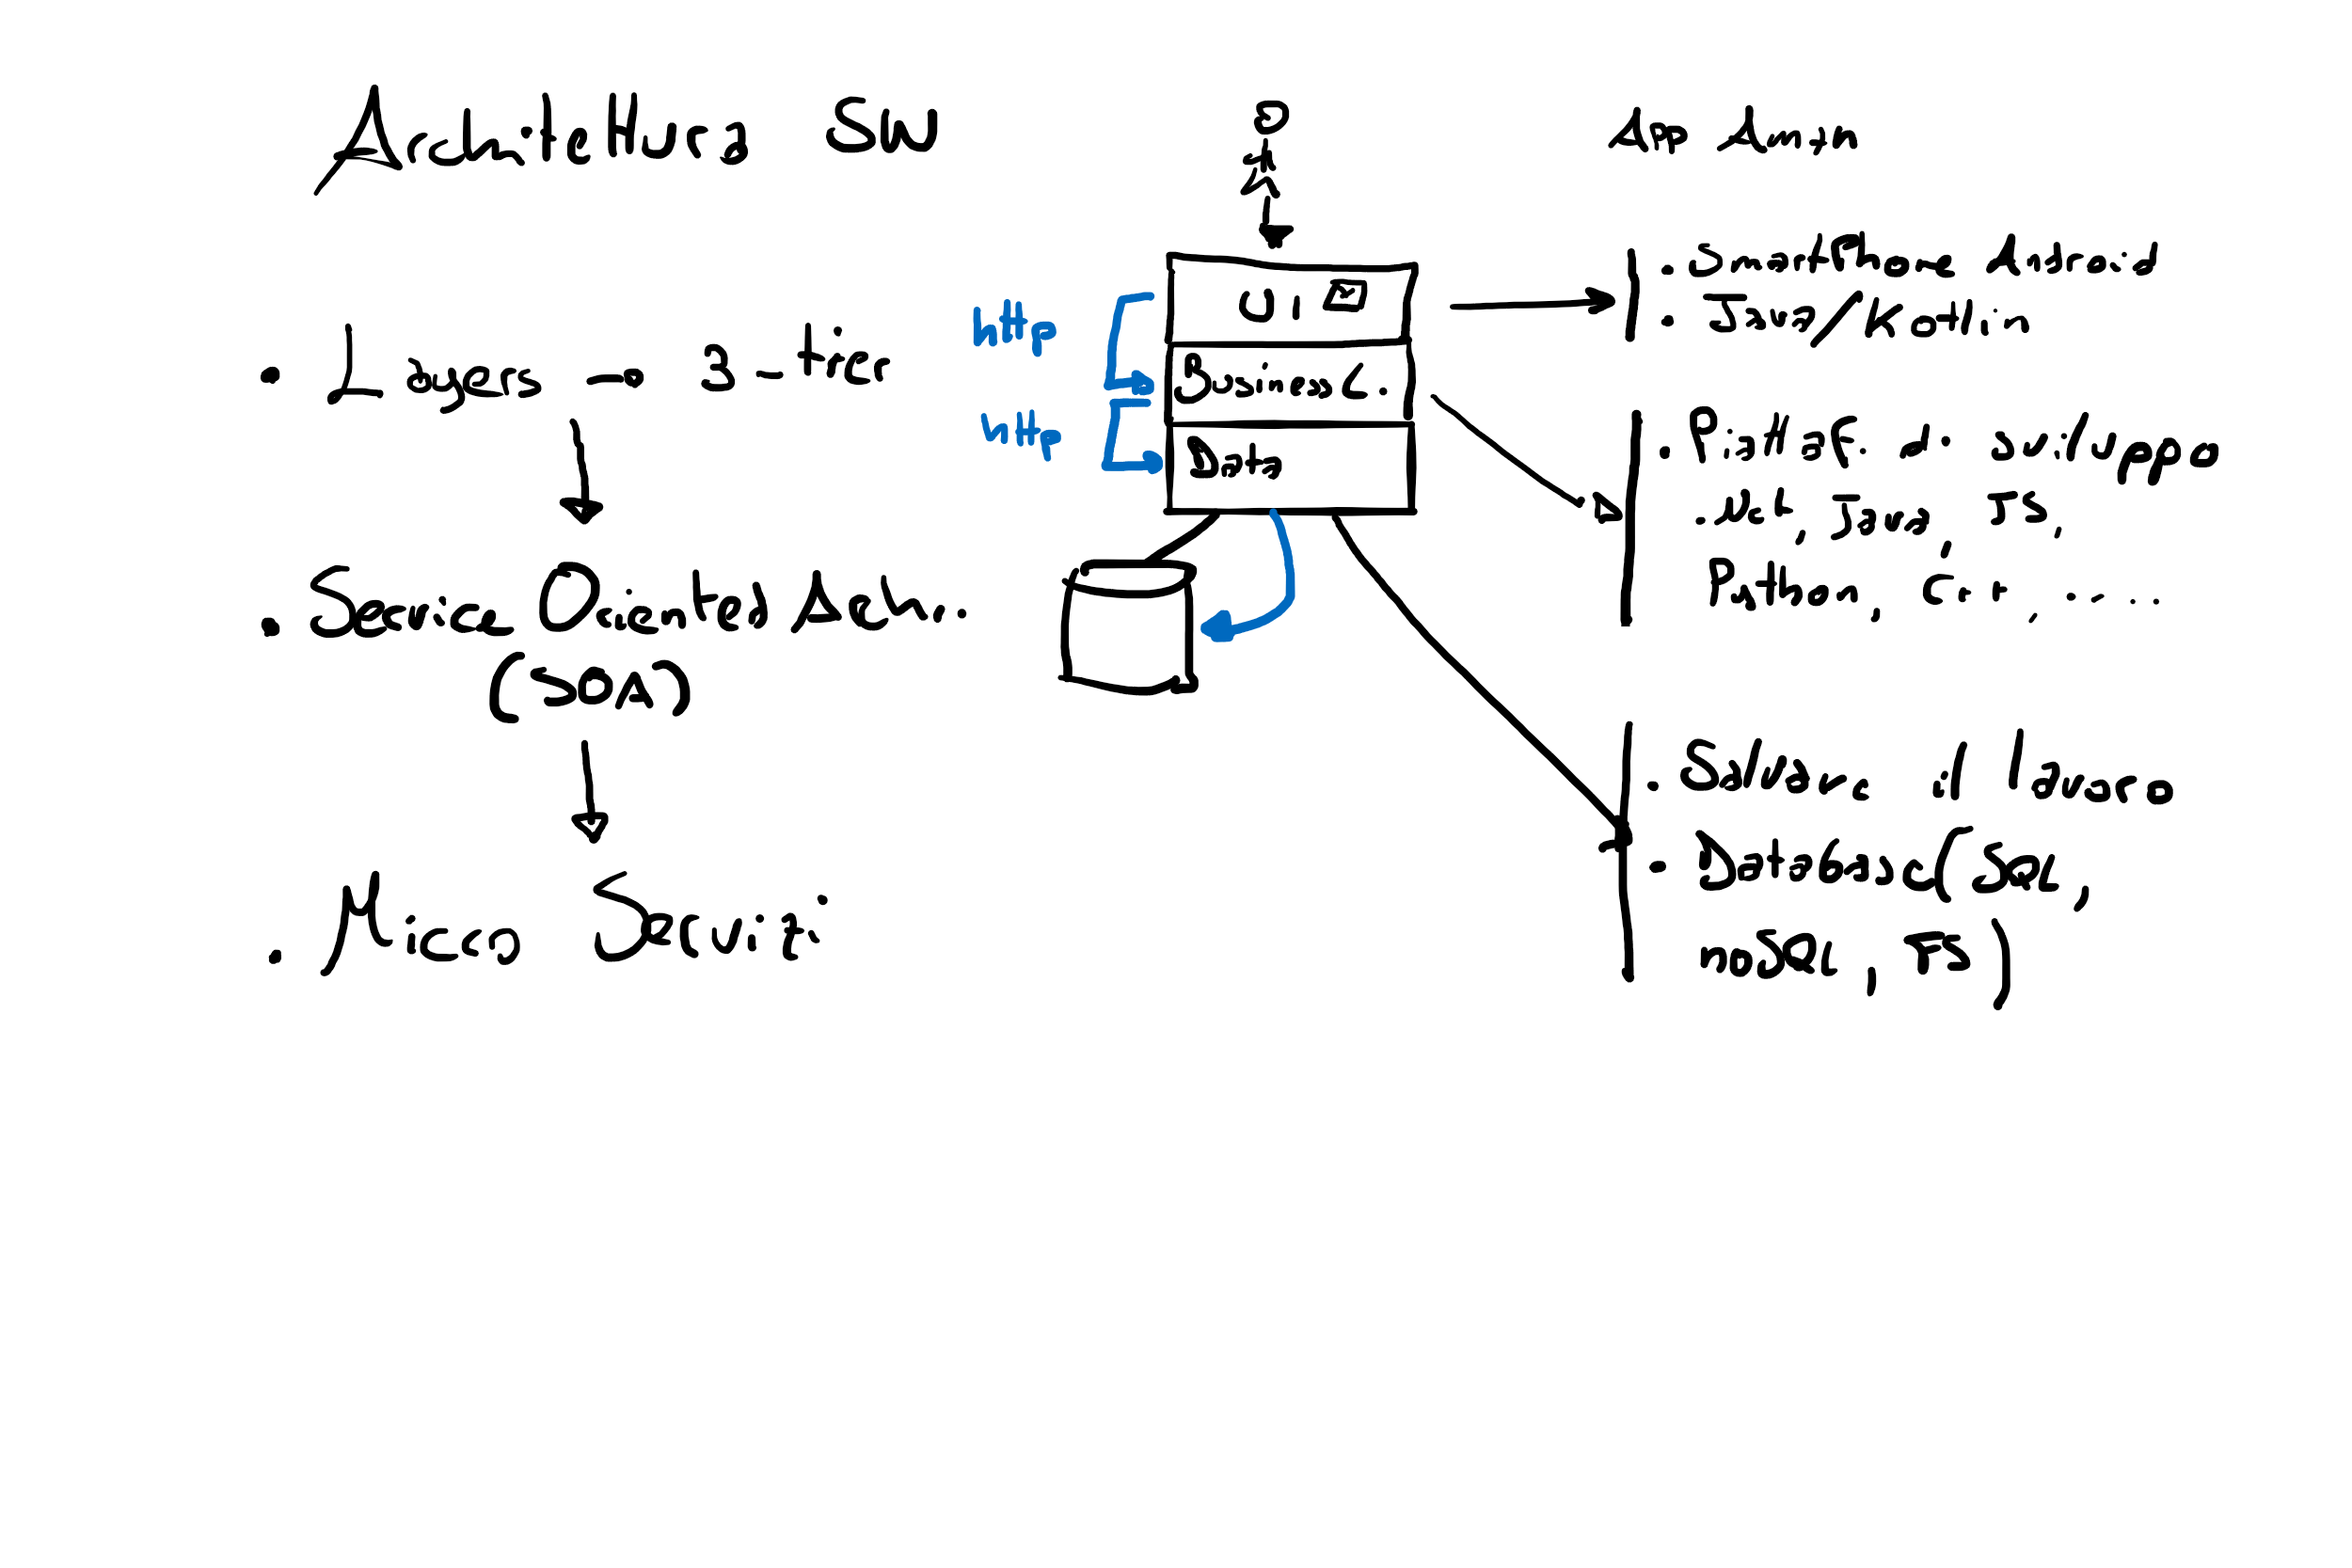 Architettura SW
. Layers → 3-tier
. Service Oriented Arch..
(SOA)
. Micro Servizi
http
http
UI
Business L.
Data
App
. SmartPhone Android
. Java/Kotlin
. Piattaf. di sviluppo
. Net, Java, JS,
Python, C++, .....
. Salvare il lavoro
. Database (SQL,
noSQL, FS)